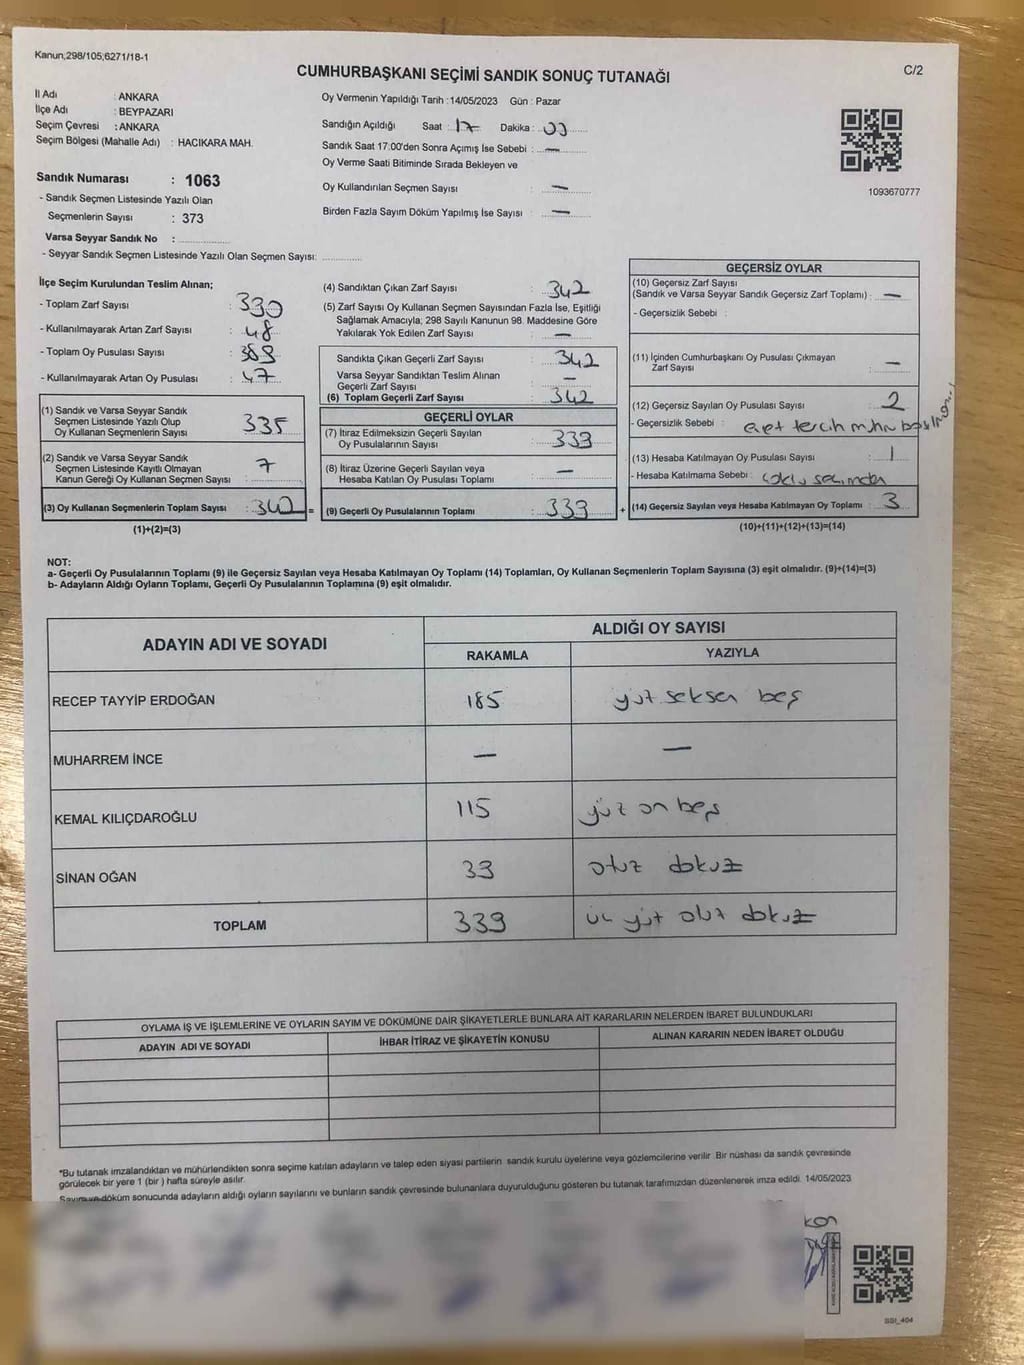 Kanun;298/105;6271/18-1
CUMHURBAŞKANI SEÇİMİ SANDIK SONUÇ TUTANAĞI
C/2
İl Adı : ANKARA
İlçe Adı : BEYPAZARI
Seçim Çevresi : ANKARA
Seçim Bölgesi (Mahalle Adı) : HACIKARA MAH.
Sandık Numarası : 1063
- Sandık Seçmen Listesinde Yazılı Olan
Seçmenlerin Sayısı : 373
Varsa Seyyar Sandık No :
- Seyyar Sandık Seçmen Listesinde Yazılı Olan Seçmen Sayısı:
Oy Vermenin Yapıldığı Tarih :14/05/2023 Gün : Pazar
Sandığın Açıldığı Saat : 17 Dakika :
Sandık Saat 17:00'den Sonra Açımış İse Sebebi : —
Oy Verme Saati Bitiminde Sırada Bekleyen ve
Oy Kullandırılan Seçmen Sayısı : —
Birden Fazla Sayım Döküm Yapılmış İse Sayısı : —
1093670777
İlçe Seçim Kurulundan Teslim Alınan;
- Toplam Zarf Sayısı :
- Kullanılmayarak Artan Zarf Sayısı : 48
- Toplam Oy Pusulası Sayısı :
- Kullanılmayarak Artan Oy Pusulası : 47
(1) Sandık ve Varsa Seyyar Sandık
Seçmen Listesinde Yazılı Olup
Oy Kullanan Seçmenlerin Sayısı : 335
(2) Sandık ve Varsa Seyyar Sandık
Seçmen Listesinde Kayıtlı Olmayan
Kanun Gereği Oy Kullanan Seçmen Sayısı : 7
(3) Oy Kullanan Seçmenlerin Toplam Sayısı : 342 =
(1)+(2)=(3)
(4) Sandıktan Çıkan Zarf Sayısı : 342
(5) Zarf Sayısı Oy Kullanan Seçmen Sayısından Fazla İse, Eşitliği
Sağlamak Amacıyla; 298 Sayılı Kanunun 98. Maddesine Göre
Yakılarak Yok Edilen Zarf Sayısı : —
Sandıkta Çıkan Geçerli Zarf Sayısı : 342
Varsa Seyyar Sandıktan Teslim Alınan
Geçerli Zarf Sayısı : —
(6) Toplam Geçerli Zarf Sayısı : 342
GEÇERLİ OYLAR
(7) İtiraz Edilmeksizin Geçerli Sayılan
Oy Pusulalarının Sayısı : 339
(8) İtiraz Üzerine Geçerli Sayılan veya
Hesaba Katılan Oy Pusulası Toplamı : —
(9) Geçerli Oy Pusulalarının Toplamı : 339 +
GEÇERSİZ OYLAR
(10) Geçersiz Zarf Sayısı
(Sandık ve Varsa Seyyar Sandık Geçersiz Zarf Toplamı) : —
- Geçersizlik Sebebi :
(11) İçinden Cumhurbaşkanı Oy Pusulası Çıkmayan
Zarf Sayısı : —
(12) Geçersiz Sayılan Oy Pusulası Sayısı : 2
- Geçersizlik Sebebi : evet tercih mührü
(13) Hesaba Katılmayan Oy Pusulası Sayısı : 1
- Hesaba Katılmama Sebebi :
(14) Geçersiz Sayılan veya Hesaba Katılmayan Oy Toplamı : 3
(10)+(11)+(12)+(13)=(14)
NOT:
a- Geçerli Oy Pusulalarının Toplamı (9) ile Geçersiz Sayılan veya Hesaba Katılmayan Oy Toplamı (14) Toplamları, Oy Kullanan Seçmenlerin Toplam Sayısına (3) eşit olmalıdır. (9)+(14)=(3)
b- Adayların Aldığı Oyların Toplamı, Geçerli Oy Pusulalarının Toplamına (9) eşit olmalıdır.
ADAYIN ADI VE SOYADI
ALDIĞI OY SAYISI
RAKAMLA YAZIYLA
RECEP TAYYİP ERDOĞAN 185 yüz seksen beş
MUHARREM İNCE — —
KEMAL KILIÇDAROĞLU 115 yüz on beş
SİNAN OĞAN 39 otuz dokuz
TOPLAM 339 üç yüz otuz dokuz
OYLAMA İŞ VE İŞLEMLERİNE VE OYLARIN SAYIM VE DÖKÜMÜNE DAİR ŞİKAYETLERLE BUNLARA AİT KARARLARIN NELERDEN İBARET BULUNDUKLARI
ADAYIN ADI VE SOYADI İHBAR İTİRAZ VE ŞİKAYETİN KONUSU ALINAN KARARIN NEDEN İBARET OLDUĞU
*Bu tutanak imzalandıktan ve mühürlendikten sonra seçime katılan adayların ve talep eden siyasi partilerin sandık kurulu üyelerine veya gözlemcilerine verilir. Bir nüshası da sandık çevresinde
görülecek bir yere 1 (bir ) hafta süreyle asılır.
Sayım ve döküm sonucunda adayların aldığı oyların sayılarını ve bunların sandık çevresinde bulunanlara duyurulduğunu gösteren bu tutanak tarafımızdan düzenlenerek imza edildi. 14/05/2023
SSI_404